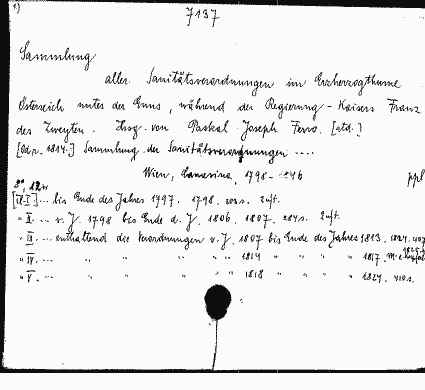 1)
7137
Sammlung
aller Sanitätsverordnungen im Erzherzogthume
Österreich unter der Enns, während der Regierung - Kaisers Franz
des Zweyten. Hrsg. von Paskal Joseph Ferro. [etc.]
[Od r. 1814:] Sammlung der Sanitätsverordnungen ....
Wien, Camesina, 1798-1846 ppl
8°, 12r
[IV-I] ... bis Ende des Jahres 1797. 1798. 2uft.
" II. ... v. J. 1798 bis Ende d. J. 1806. 1807. 284 s. 2uft.
" III ... enthaltend die Verordnungen v. J. 1807 bis Ende des Jahres 1813. 1824.
" IV. ... " " " " " 1814 " " " " 1817.
" V. ... " " " " " 1818 " " " " 1824. 410 s.